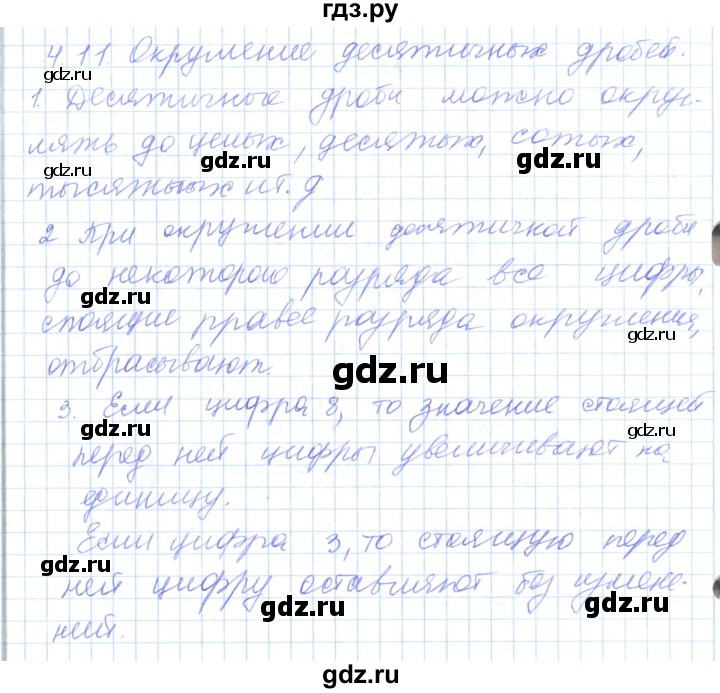 гдз.ру
4.11. Округление десятичных дробей.
gdz.ru gdz.ru
1. Десятичные дроби можно округ-
лять до целых, десятых, сотых,
gdz.ru gdz.ru
тысячных и т. д
2 При округлении десятичной дроби
до некоторого разряда все цифры,
gdz.ru gdz.ru
стоящие правее разряда округления,
отбрасывают.
gdz.ru
3. Если цифра 8, то значение стоящей
gdz.ru gdz.ru
перед ней цифры увеличивают на
единицу.
Если цифра 3, то стоящую перед
ней цифру оставляют без измене-
gdz.ru gdz.ru
ний.
gdz.ru